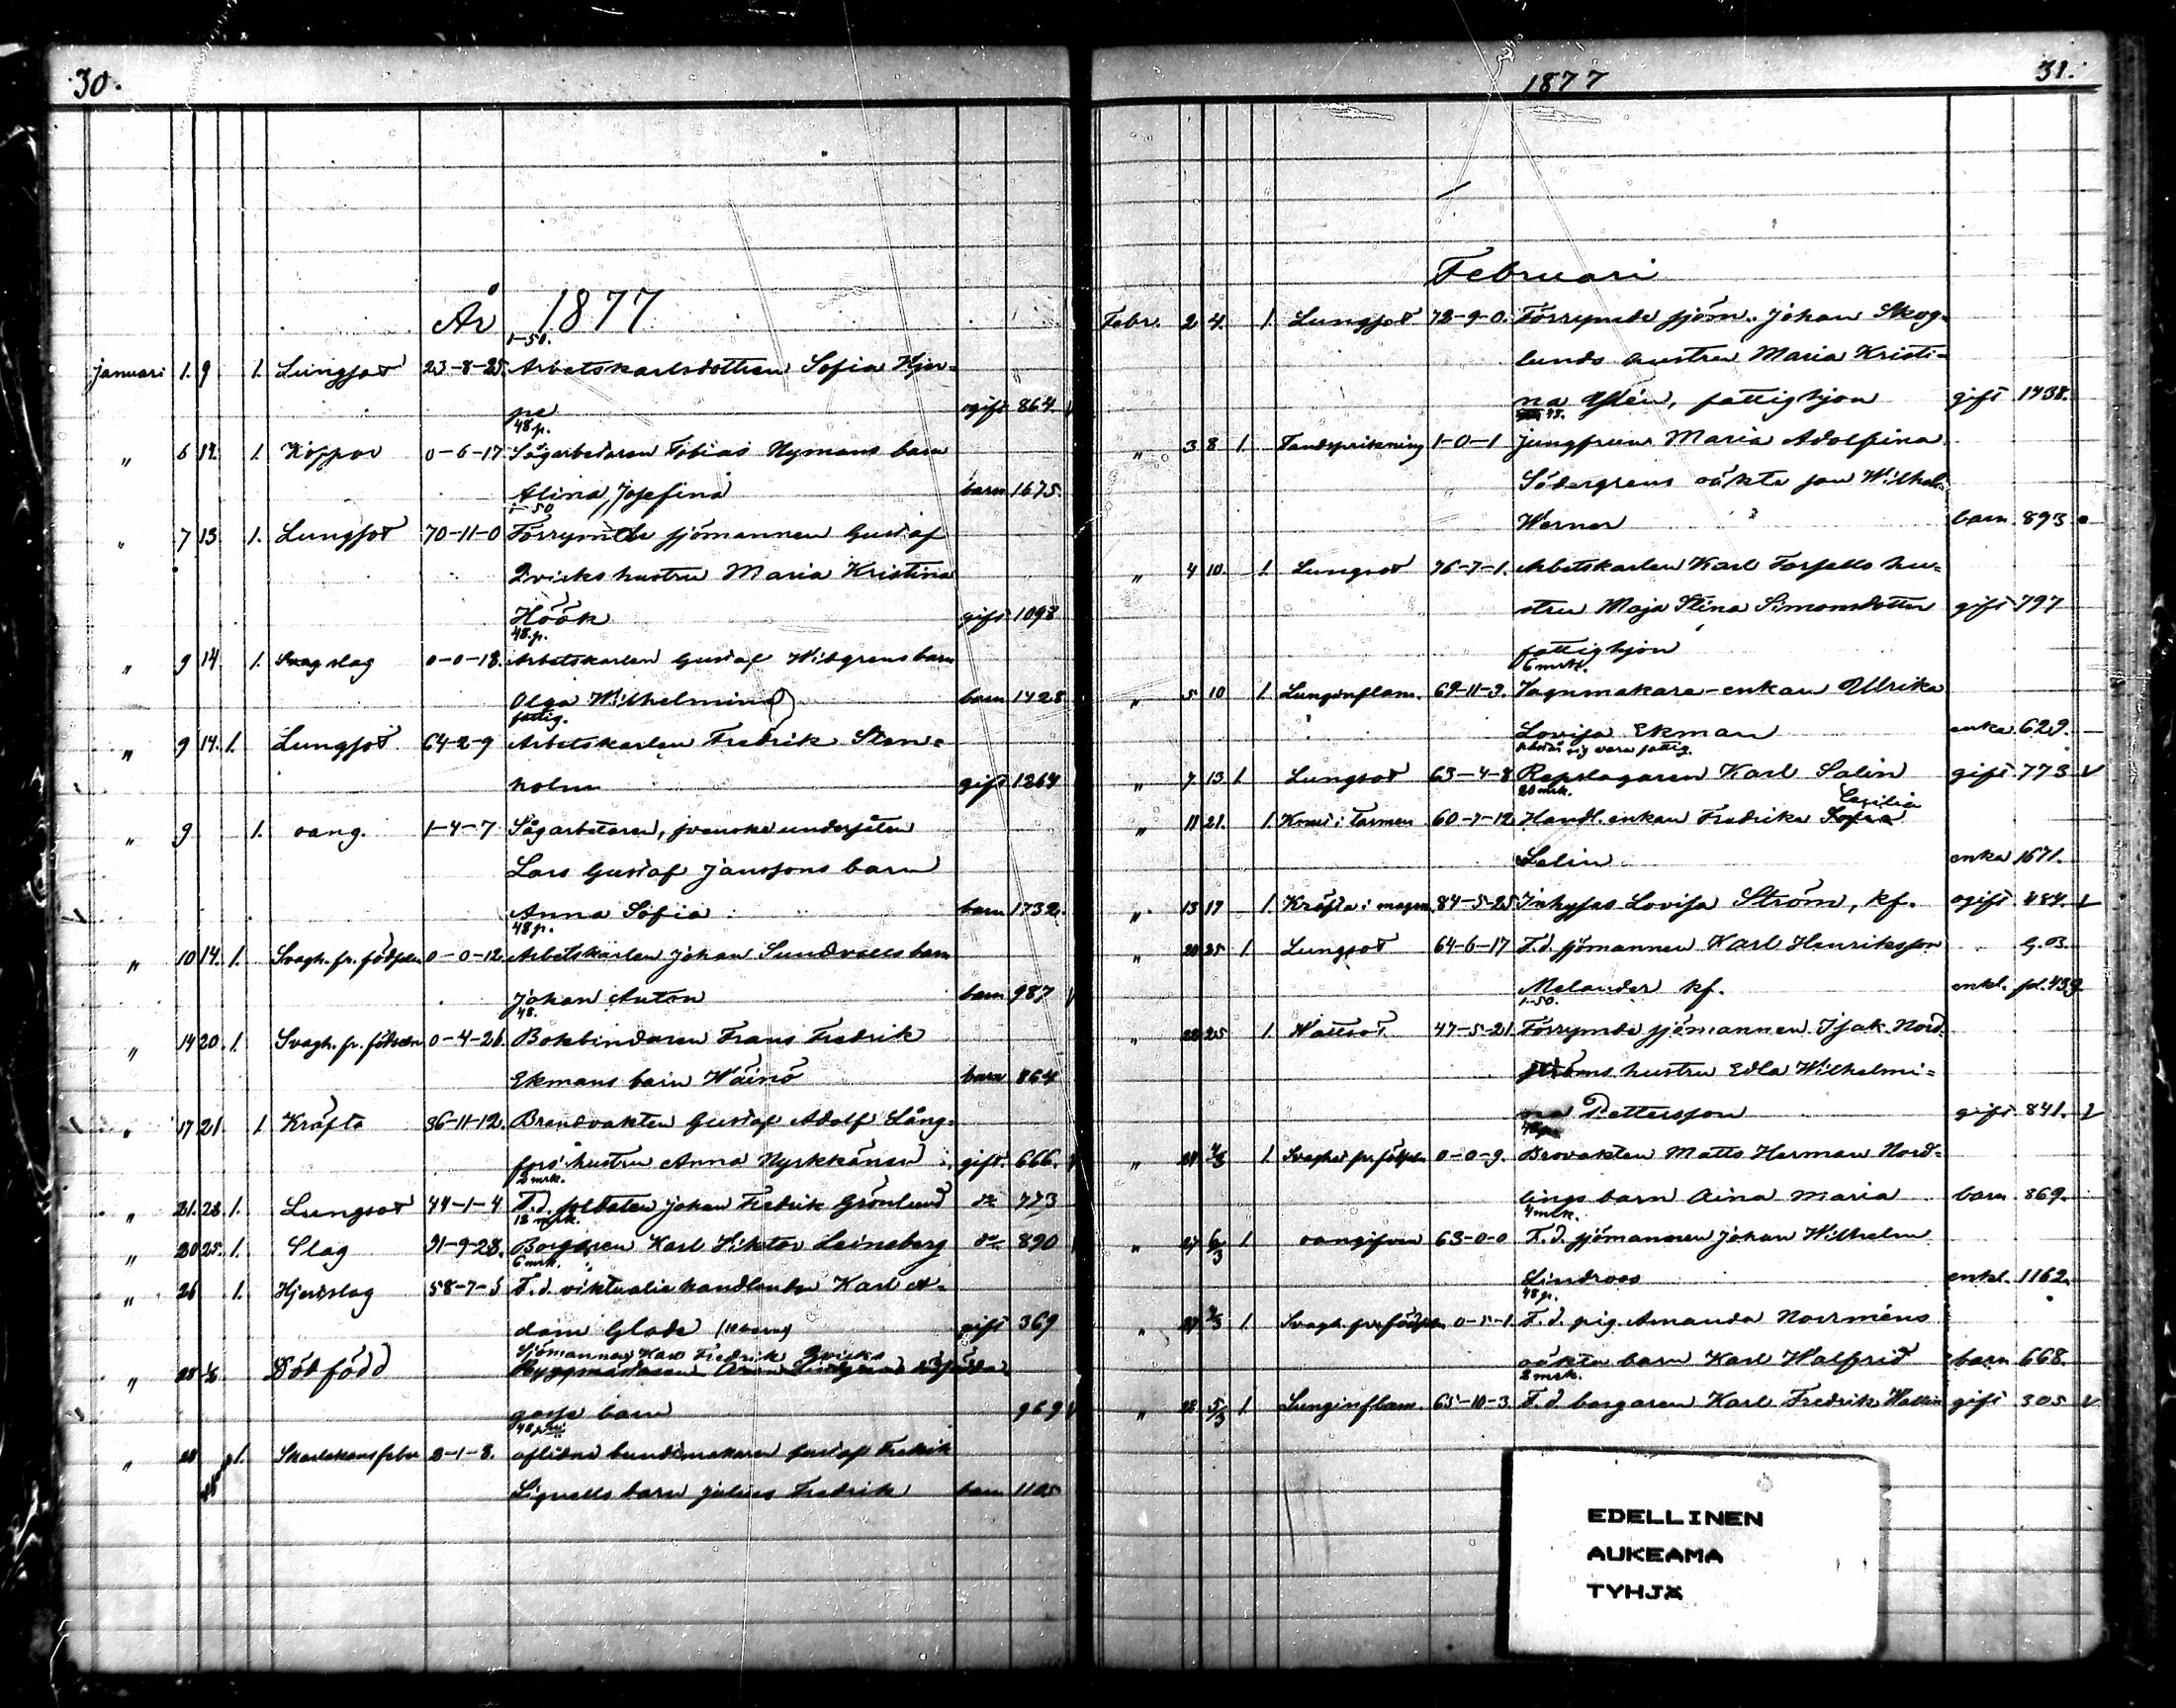 30.
År 1877
1-50.
Januari 1. 9 1. Lungsot 23-8-25. Arbetskarlsdottren Sofia Hjer=
pe ogift 864.
48 p.
" 6 12. 1. Koppor 0-6-17 Sågarbetaren Tobias Nymans barn
Alina Josefina barn 1675.
1-50
" 7 13 1. Lungsot 70-11-0 Förrymde sjömannen Gustaf
Qvicks hustru Maria Kristina
Höök gift 1098
48.p.
" 9 14 1. Slag 0-0-18. Arbetskarlen Gustaf Widgrens barn
Olga Wilhelmina barn 1428
fattig.
" 9 14. 1. Lungsot 64-2-9 Arbetskarlen Fredrik Sten=
holm gift 1264
" 9 1. oang. 1-4-7 Sågarbetaren, svenske undersåten
Lars Gustaf Janssons barn
Anna Sofia barn 1732.
48 p.
" 10 14. 1. Svagh. fr. födseln 0-0-12 Arbetskarlen Johan Sundvalls barn
Johan Anton barn 987
48.
" 14 20. 1. Svagh. fr. födseln 0-4-26. Bokbindaren Frans Fredrik
Ekmans barn Wäinö barn 864
" 17 21 1 Kräfta 36-11-12. Brandvakten Gustaf Adolf Lång=
fors hustru Anna Nyrkkänen gift. 666.
2 mrk.
" 21. 28 1. Lungsot 44-1-4 F.d. soldaten Johan Fredrik Grönlund do 773
12 mrk.
" 20 25. 1. Slag 31-9-28. Borgaren Karl Viktor Leineberg do 890
6 mrk.
" 26 1. Hjertslag 58-7-5 F.d. viktualiehandlanden Karl A=
dam Glade gift 369
Sjömannen Karl Fredrik Qvicks
" 28 Dödfödd
gosse barn 969
48 p.
" 28 1. Skarlakansfeber 2-1-8. aflidne buntmakaren Gustaf Fredrik
Lignells barn Julius Fredrik barn 1105
1877 31.
Februari
Febr. 2 4. 1. Lungsot 72-9-0. Förrymde sjöm. Johan Skog=
lunds hustru Maria Kristi=
na Ylén, fattighjon gift 1438.
48.
" 3 8 1. Tandsprikning 1-0-1 Jungfruns Maria Adolfina
Södergrens oäkta son Wilhelm
Werner barn 893
" 4 10. 1. Lungsot 76-7-1. Arbetskarlen Karl Forsells hu=
stru Maja Stina Simonsdotter gift 797
fattighjon
6 mrk.
" 5 10 1. Lunginflam. 69-11-3. Vagnmakare-enkan Ulrika
Lovisa Ekman enka 629.
påstås sig vara fattig.
" 7 13 1 Lungsot 63-4-8 Repslagaren Karl Salin gift 773
20 mrk.
Cecilia
" 11 21. 1. i tarmen 60-7-12 Handl. enkan Fredrika Sofia
Selin enka 1671.
" 13 17 1. Kräfta i magen 84-5-25 Inhyses Lovisa Ström, kf. ogift 484.
" 20 25 1 Lungsot 64-6-17 F.d. sjömannen Karl Henriksson
Melander kf. enkl. 439
1-50.
" 22 25 1. Wattsot 47-5-21. Förrymde sjömannen Isak Nord=
ströms hustru Edla Wilhelmi=
na Pettersson gift 841.
" 24 4/3 1. Svaghet fr. födseln 0-0-9. Brovakten Matts Herman Nord=
lings barn Aina Maria barn 869.
4 mrk.
" 27 6/3 1 oangifven 63-0-0 F.d. sjömannen Johan Wilhelm
Lindroos enkl. 1162.
48 p.
" 27 4/3 1 Svagh. fr. födseln 0-5-1. F.d. pig. Amanda Norrméns
oäkta barn Karl Walfrid barn 668.
2 mrk.
" 28 5/3 1 Lunginflam. 65-10-3. F.d. borgaren Karl Fredrik Wallin gift 305
EDELLINEN
AUKEAMA
TYHJÄ